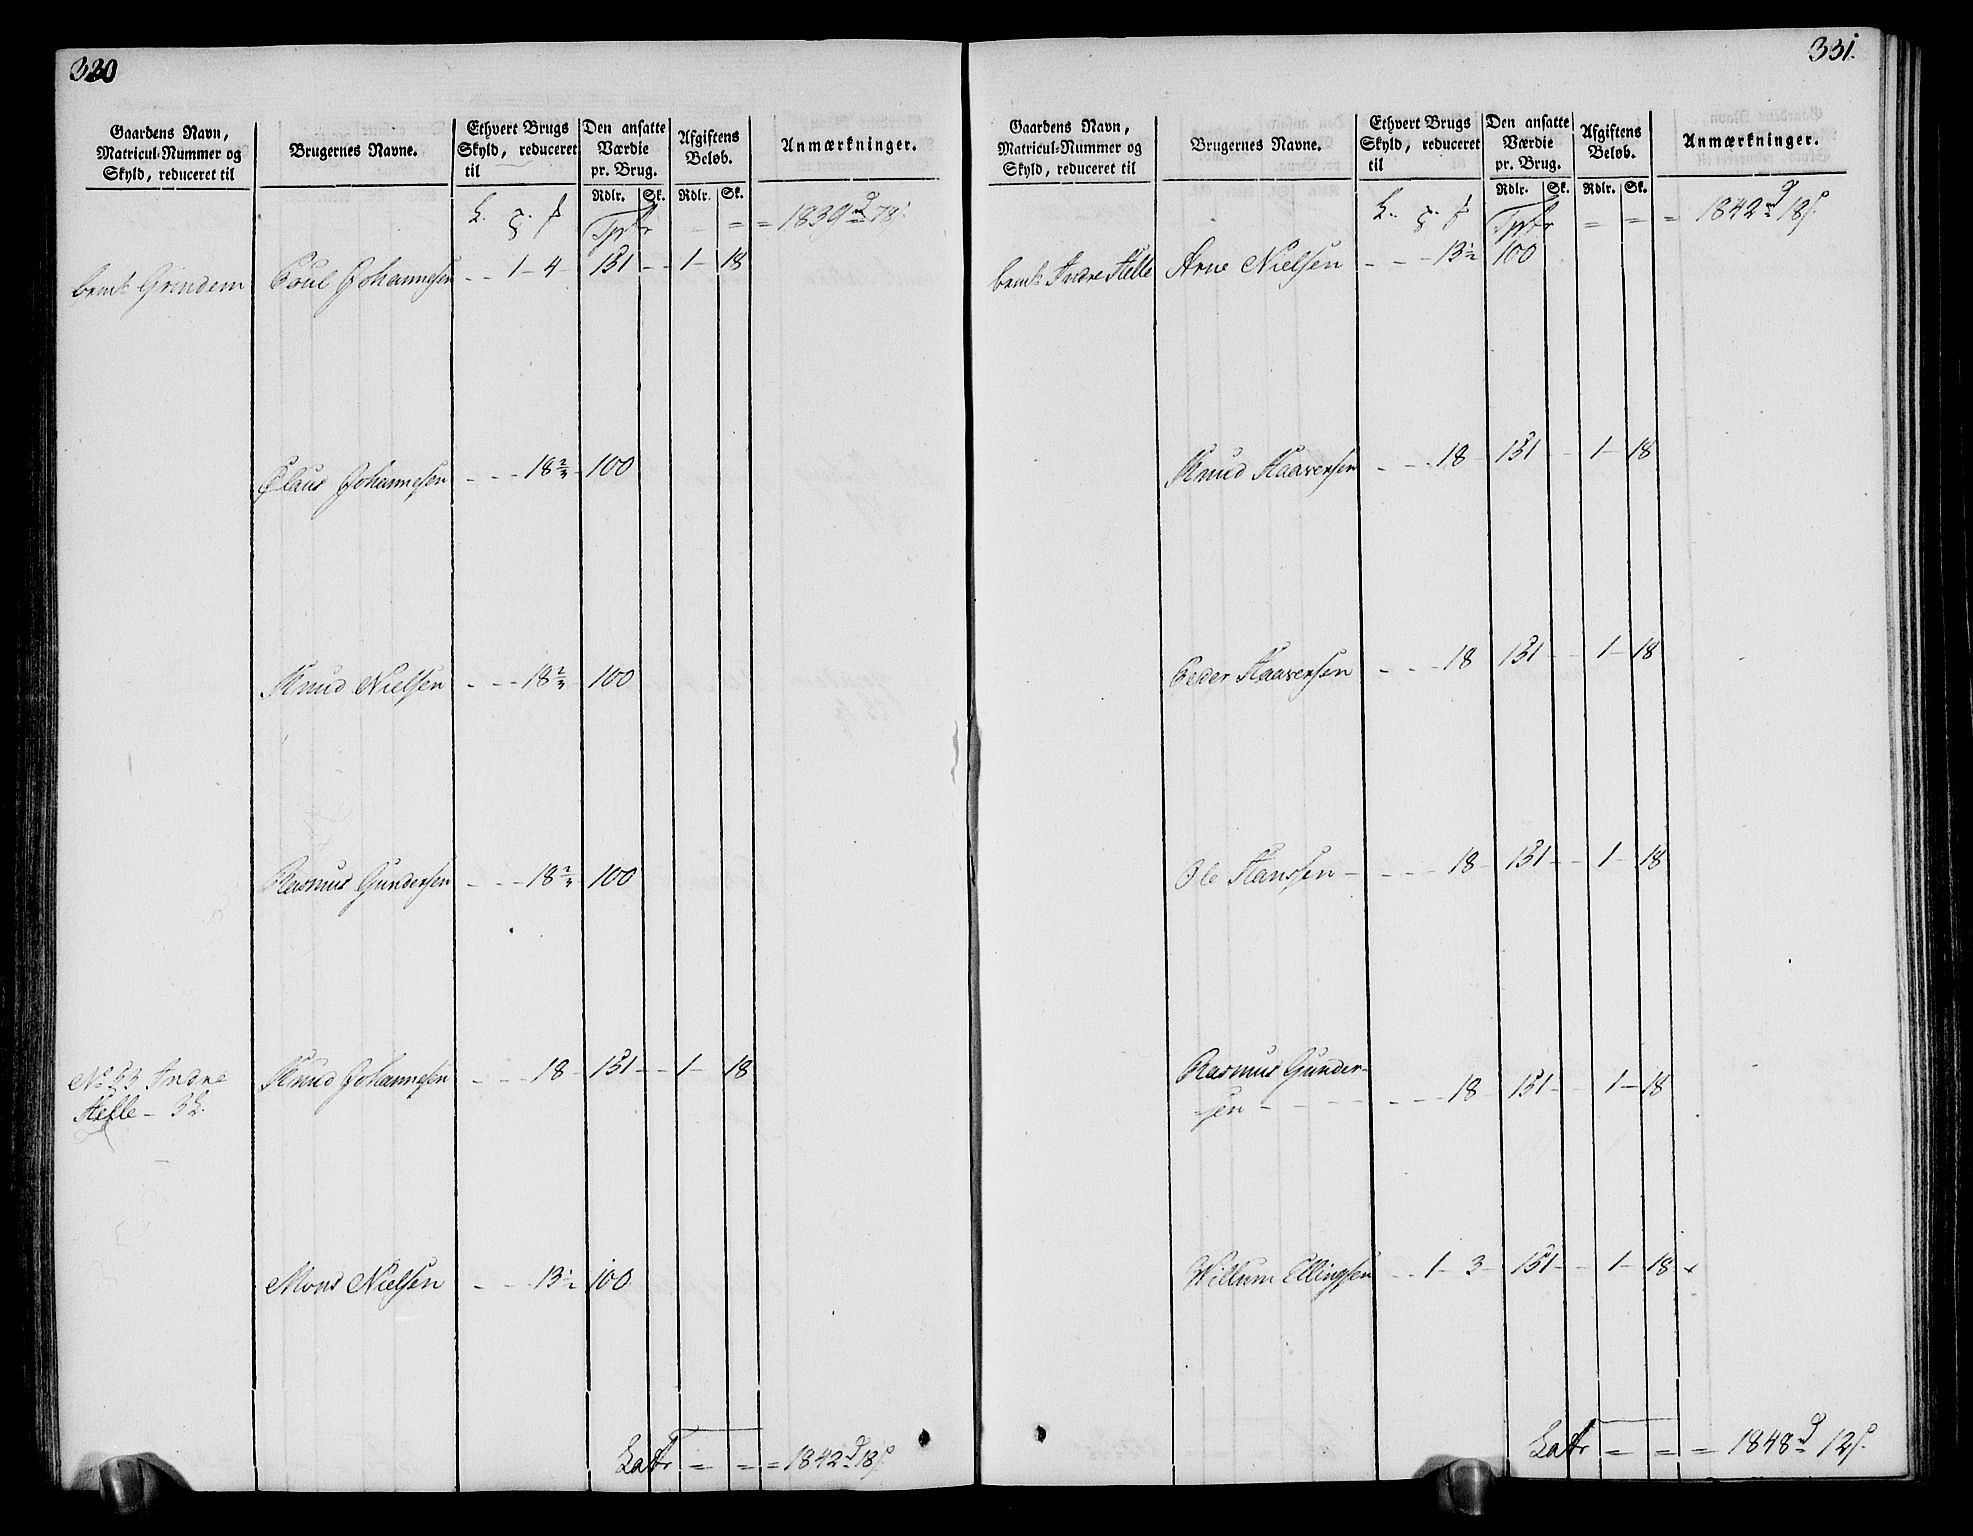 330
Gaardens Navn, Matricul-Nummer og Skyld, reduceret til | Brugernes Navne. | Ethvert Brugs Skyld, reduceret til | Den ansatte Værdie pr. Brug. Rdlr. Sk. | Afgiftens Beløb. Rdlr. Sk. | Anmærkninger.
Tpr = = 1839 d 78 s.
bemt Grindem Poul Johannesen - - 1 - 4 - 151 - - 1 - 18
Claus Johannesen - - - 18 2/3 - 100
Knud Nielsen - - - 18 2/3 - 100
Rasmus Gundersen - - - 18 2/3 - 100
No 53 Indre Knud Johannesen - - - 18 - 151 - - 1 - 18
Helle - 3
Mons Nielsen - - - 13 1/2 100
Latr = = = 1842 d 18 s.
331.
Gaardens Navn, Matricul-Nummer og Skyld, reduceret til | Brugernes Navne. | Ethvert Brugs Skyld, reduceret til | Den ansatte Værdie pr. Brug. Rdlr. Sk. | Afgiftens Beløb. Rdlr. Sk. | Anmærkninger.
Tpr = = = 1842 d 18 s.
bemt Indre Helle Arne Nielsen - - - 13 1/2 100
Knud Haaversen - - - 18 - 151 - - 1 - 18
Peder Haaversen - - - 18 151 - - 1 - 18
Ole Hanssen - - - - 18 - 151 - - 1 - 18
Rasmus Gunder-
sen - - - - - - - 18 - 151 - - 1 - 18
Willum Ellingsen - - 1 - 3 - 151 - - 1 - 18 x
Latr = = = 1848 d 12 s.